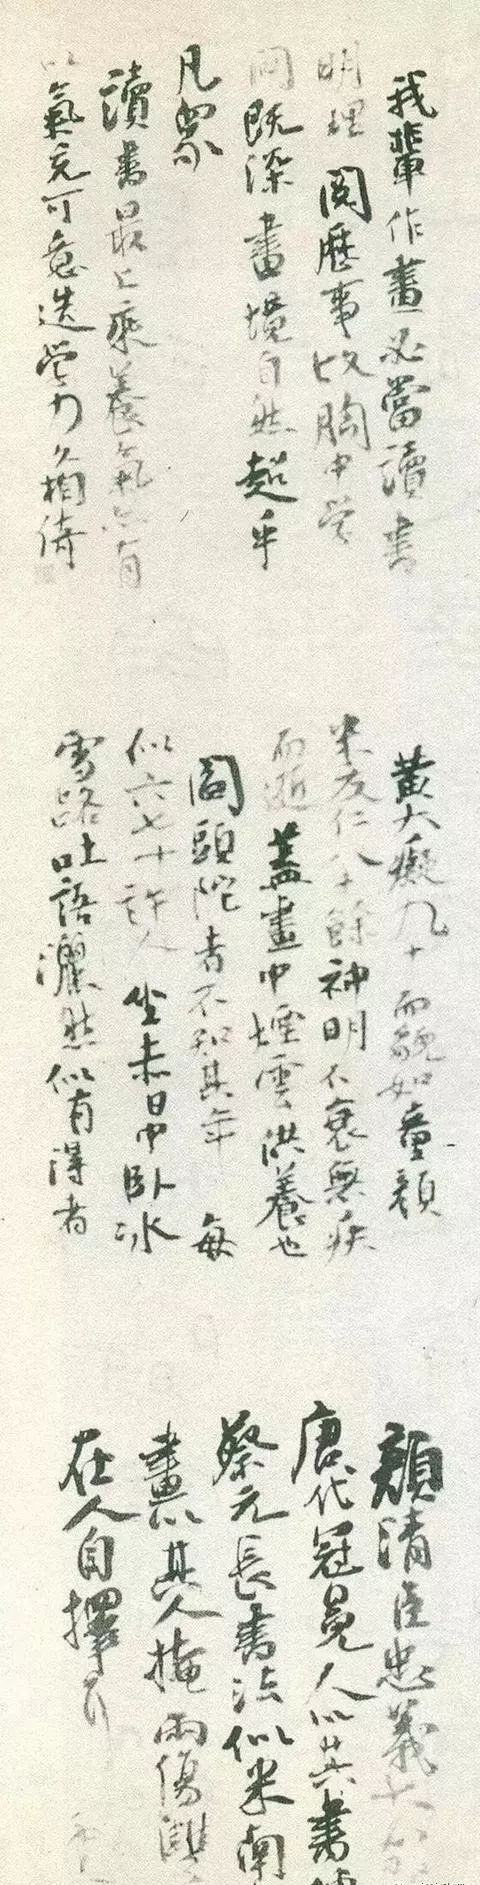 我輩作畫必當讀書
明理閱歷事故胸中學
問既深畫境自然超乎
凡眾
讀書最上乘養氣亦有
以氣充可意造學力久相倚
黃大癡九十而貌如童顏
米友仁八十餘神明不衰無疾
而逝蓋畫中煙雲供養也
閻頭陀者不知其年每
似六七十許人坐赤日中臥冰
雪路吐語灑然似有得者
顏清臣忠義大節
唐代冠冕人以其書
蔡元長書法似米南
畫以其人掩兩傷雙
在人自擇